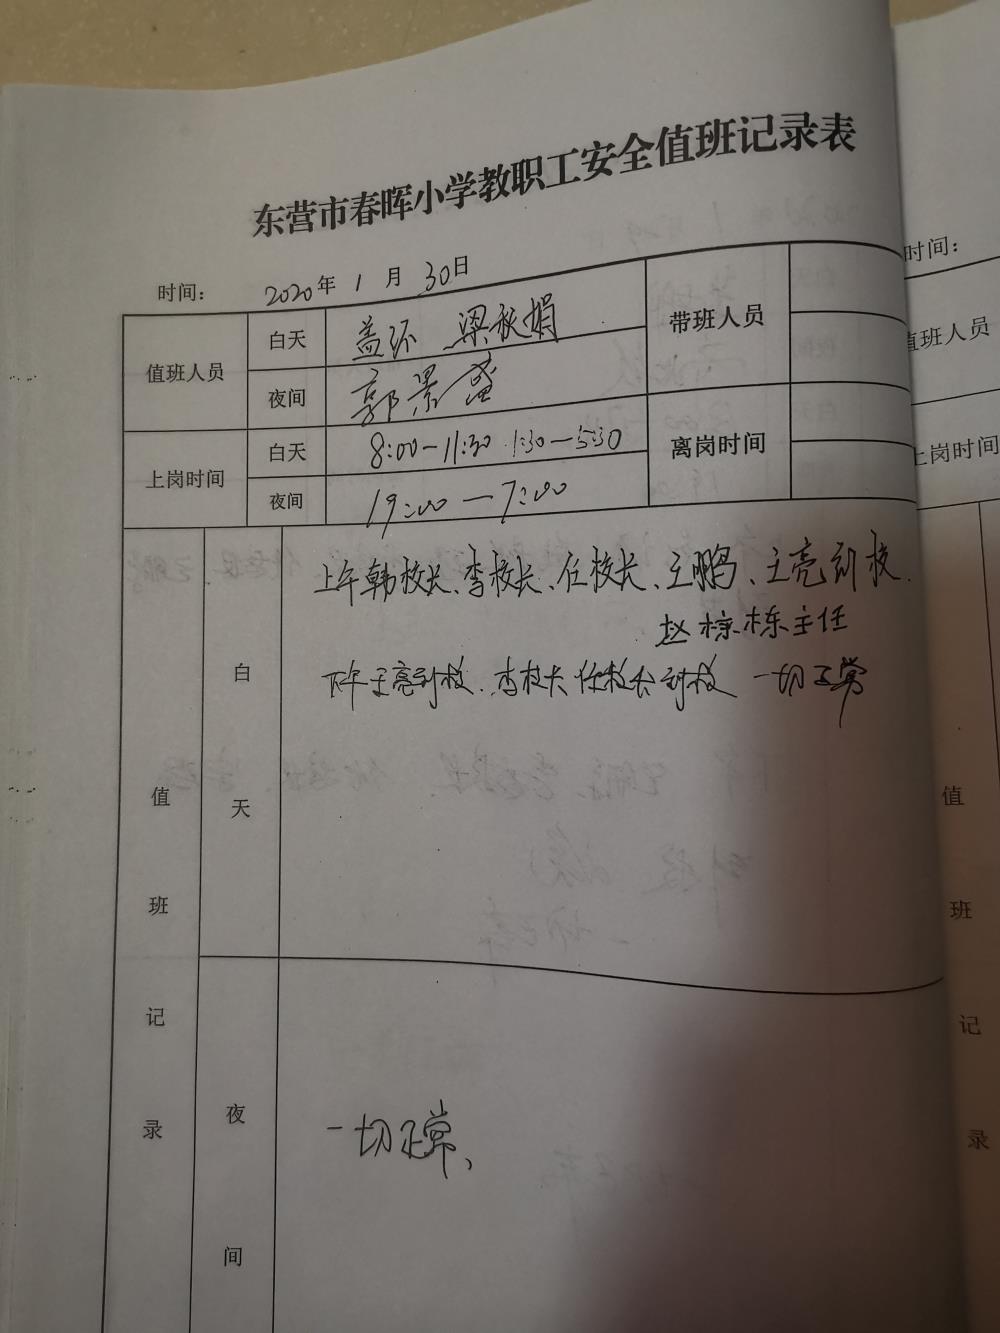 东营市春晖小学教职工安全值班记录表
时间： 2020年 1 月 30日
值班人员 白天 盖环 梁秋娟 带班人员
夜间 郭景盛
上岗时间 白天 8:00—11:30 1:30—5:30 离岗时间
夜间 19:00—7:00
上午韩校长、李校长、任校长、王鹏、王亮到校.
赵 栋主任
下午王亮到校、李校长 任校长到校 一切正常
白天
一切正常、
夜间
值班记录
时间：
值班人员
上岗时间
值
班
记
录